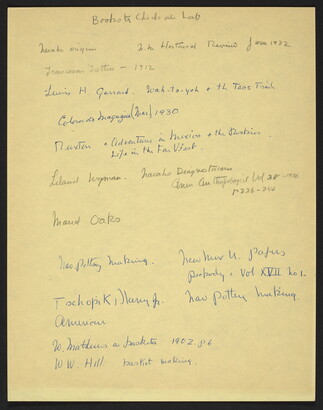 Books to Check at Lab
Navaho origins N.M. Historical Review June 1932
Franciscan Fathers - 1912
Lewis H. Garrard. Wah-to-yah & the Taos Trail
Colorado Magazine (Mar) 1930
Ruxton & Adventures in Mexico & the Rockies.
Life in the Far West.
Leland Wyman. Navaho Diagnosticians
Amer. Anthropologist Vol 38 - 1936
p 236-246
Maud Oakes
Nav Pottery making. New Mex U. Papers
Peabody. Vol XVII no. 1.
Tschopik, Harry Jr. Nav Pottery Making.
American
W. Mathews on baskets 1902. p 6
W W. Hill basket making.